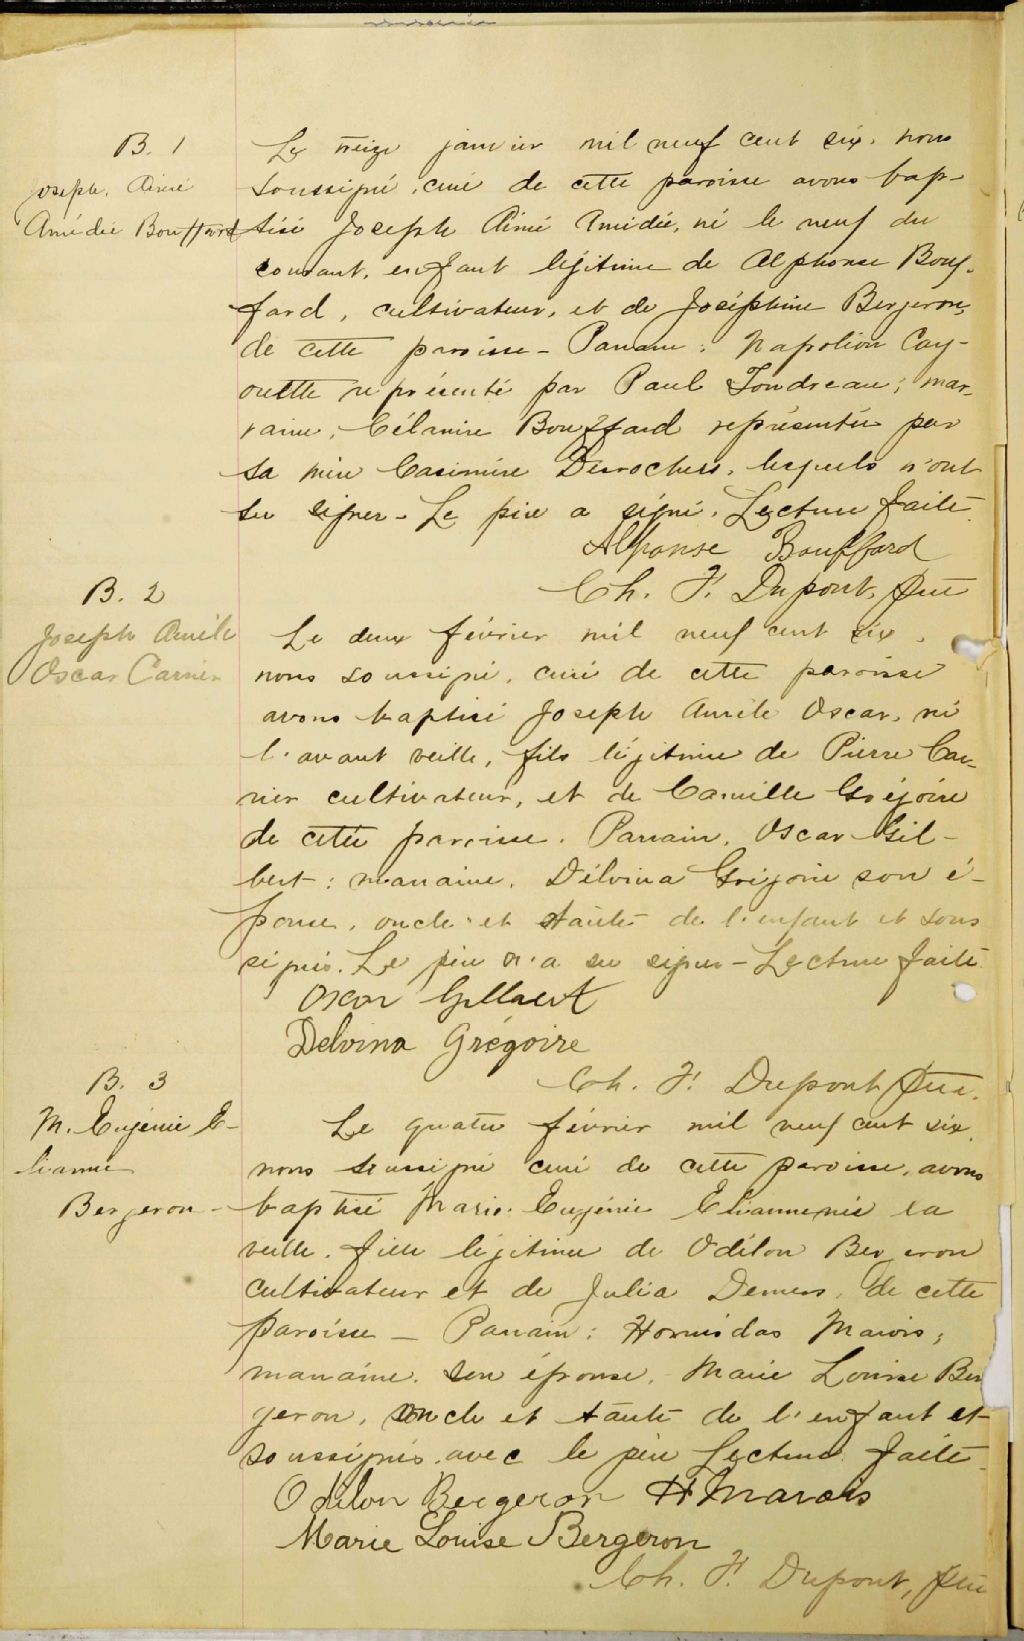 B. 1
Joseph. Aimé
Amédée Bouffard
Le treize janvier mil neuf cent six, nous
soussigné, curé de cette paroisse avons bap-
tisé Joseph Aimé Amédée, né le neuf du
courant, enfant légitime de Alphonse Bouf-
fard, cultivateur, et de Joséphine Bergeron,
de cette paroisse - Parrain: Napoléon Cay-
ouette représenté par Paul Fondreau; mar-
raine, Célanire Bouffard représentée par
sa mère Casimire Desrochers, lesquels n'ont
su signer - Le père a signé. Lecture faite
Alphonse Bouffard
Ch. F. Dupont, Ptre
B. 2
Joseph Aurèle
Oscar Carrier
Le deux février mil neuf cent six,
nous soussigné, curé de cette paroisse
avons baptisé Joseph Aurèle Oscar, né
l'avant veille, fils légitime de Pierre Car-
rier cultivateur, et de Camille Grégoire
de cette paroisse. Parrain, Oscar Gil-
bert: marraine, Délvina Grégoire son é-
pouse, oncle et tante de l'enfant et sous
signés. Le père n'a su signer - Lecture faite
Oscar Gilbert
Delvina Grégoire
Ch. F. Dupont Ptre.
B. 3
M. Eugénie E-
lianne
Bergeron -
Le quatre février mil neuf cent six,
nous soussigné curé de cette paroisse, avons
baptisé Marie Eugénie Elianne née la
veille, fille légitime de Odilon Bergeron
cultivateur et de Julia Demers, de cette
paroisse - Parrain: Hormisdas Marois;
marraine, son épouse, Marie Louise Ber
geron, oncle et tante de l'enfant et
soussignés avec le père Lecture faite
Odilon Bergeron H Marois
Marie Louise Bergeron
Ch. F. Dupont, Ptre